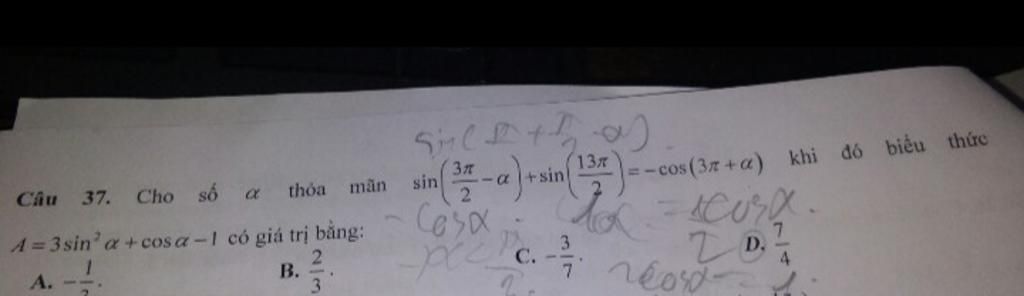 sin(π + π/2 - α)
Câu 37. Cho số α thỏa mãn sin(3π/2 - α) + sin(13π/2) = -cos(3π + α) khi đó biểu thức
-cosα
= cosα.
A = 3sin² α + cosα - 1 có giá trị bằng:
A. -1/
B. 2/3.
C. -3/7.
D. 7/4
2cosα = 1